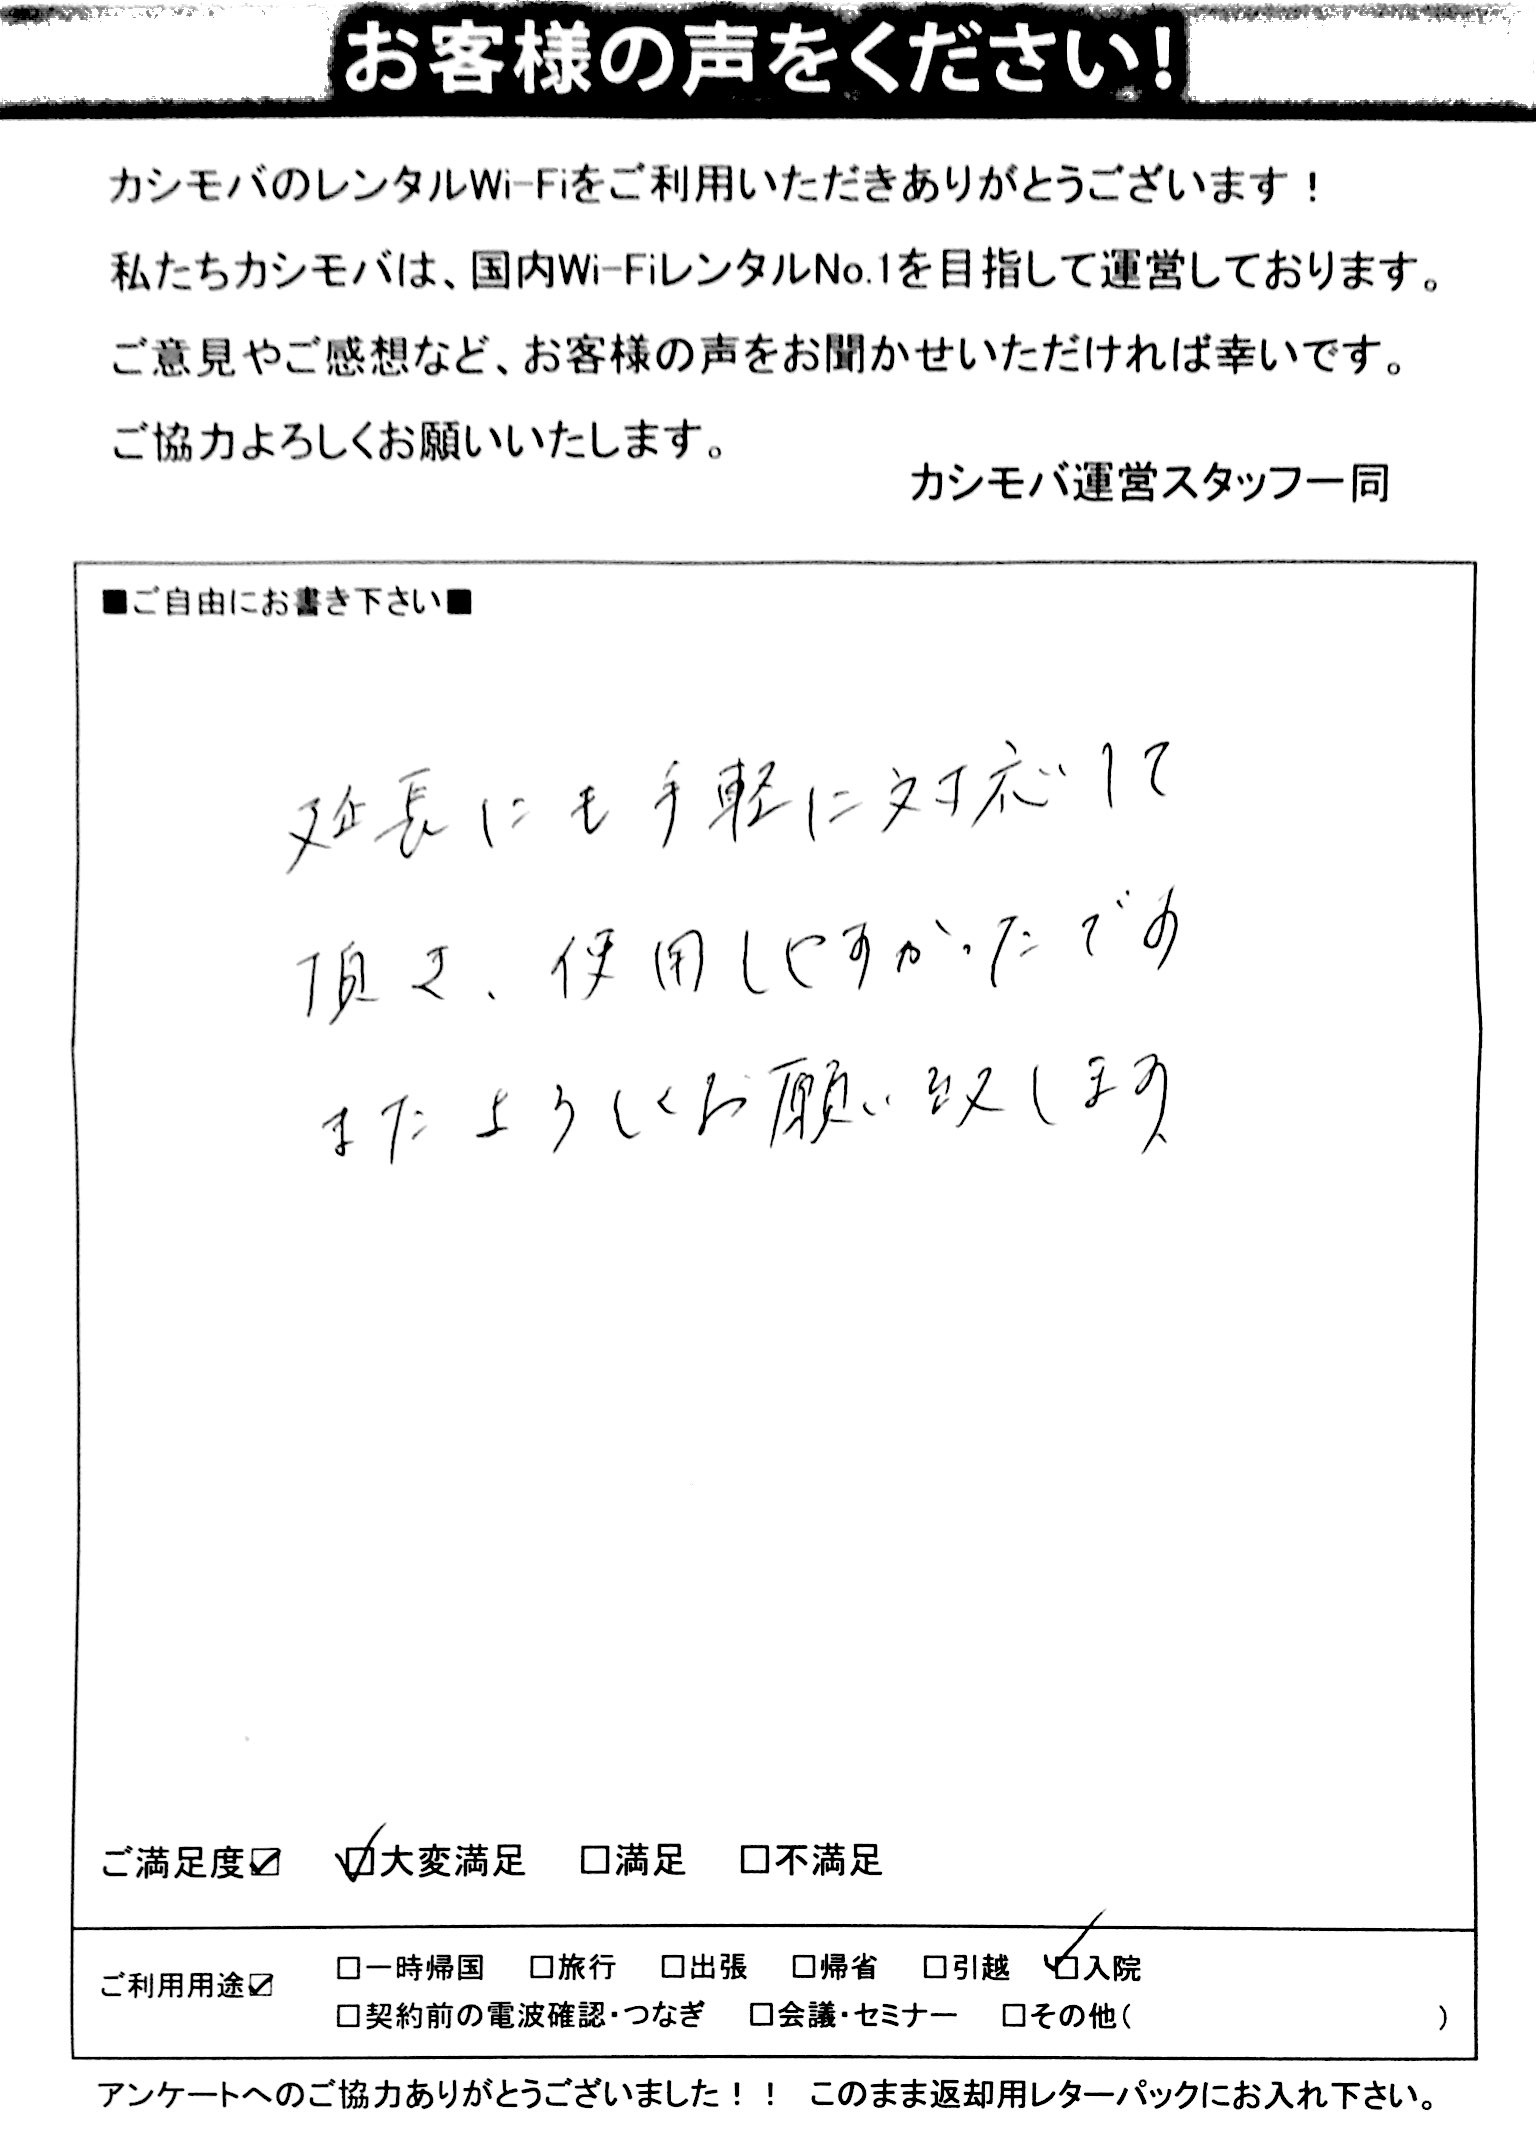 お客様の声をください!
カシモバのレンタルWi-Fiをご利用いただきありがとうございます！
私たちカシモバは、国内Wi-FiレンタルNo.1を目指して運営しております。
ご意見やご感想など、お客様の声をお聞かせいただければ幸いです。
ご協力よろしくお願いいたします。
カシモバ運営スタッフ一同
■ご自由にお書き下さい■
延長にも手軽に対応して
頂き、使用しやすかったです
またよろしくお願い致します
ご満足度☑ ☑大変満足 □満足 □不満足
ご利用用途☑ □一時帰国 □旅行 □出張 □帰省 □引越 ☑入院
□契約前の電波確認・つなぎ □会議・セミナー □その他( )
アンケートへのご協力ありがとうございました！！ このまま返却用レターパックにお入れ下さい。